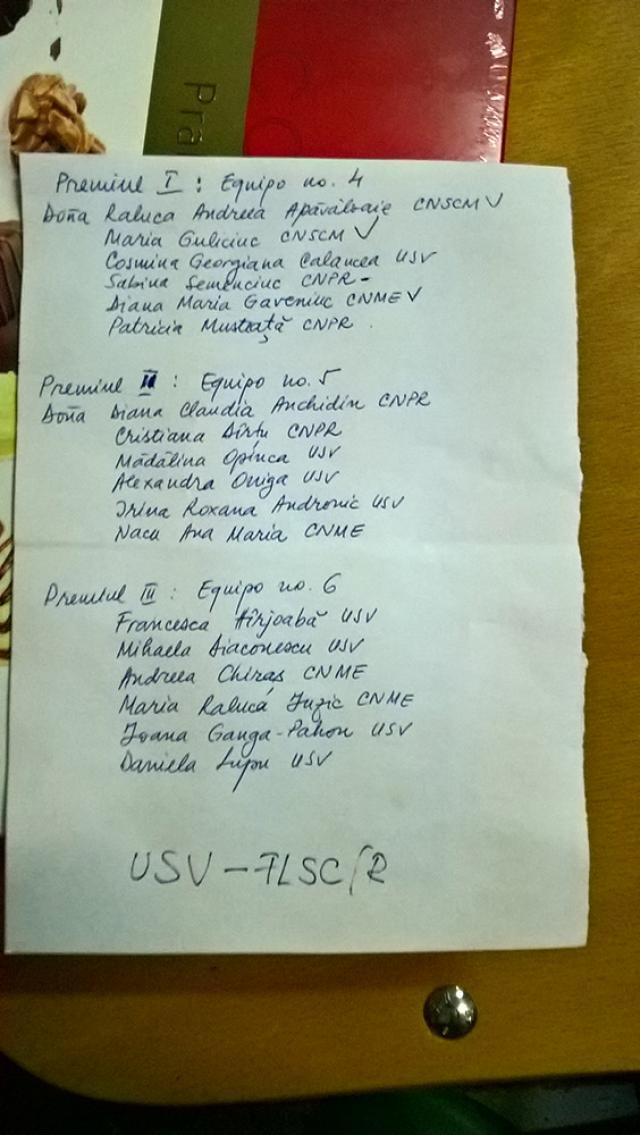 Prä
Premiul I : Equipo no. 4
Doña Raluca Andreea Apăvăloaie CNSCM V
Maria Guliciuc CNSCM V
Cosmina Georgiana Calancea USV
Sabina Semenciuc CNPR -
Diana Maria Gaveniuc CNME V
Patricia Mustață CNPR
Premiul II : Equipo no. 5
Doña Diana Claudia Anchidin CNPR
Cristiana Dîrțu CNPR
Mădălina Opinca USV
Alexandra Oniga USV
Irina Roxana Andronic USV
Nacu Ana Maria CNME
Premiul III : Equipo no. 6
Francesca Hîrjoabă USV
Mihaela Diaconescu USV
Andreea Chiraș CNME
Maria Raluca CNME
Ioana Ganga-Pahon USV
Daniela Lupu USV
USV - FLSC/R